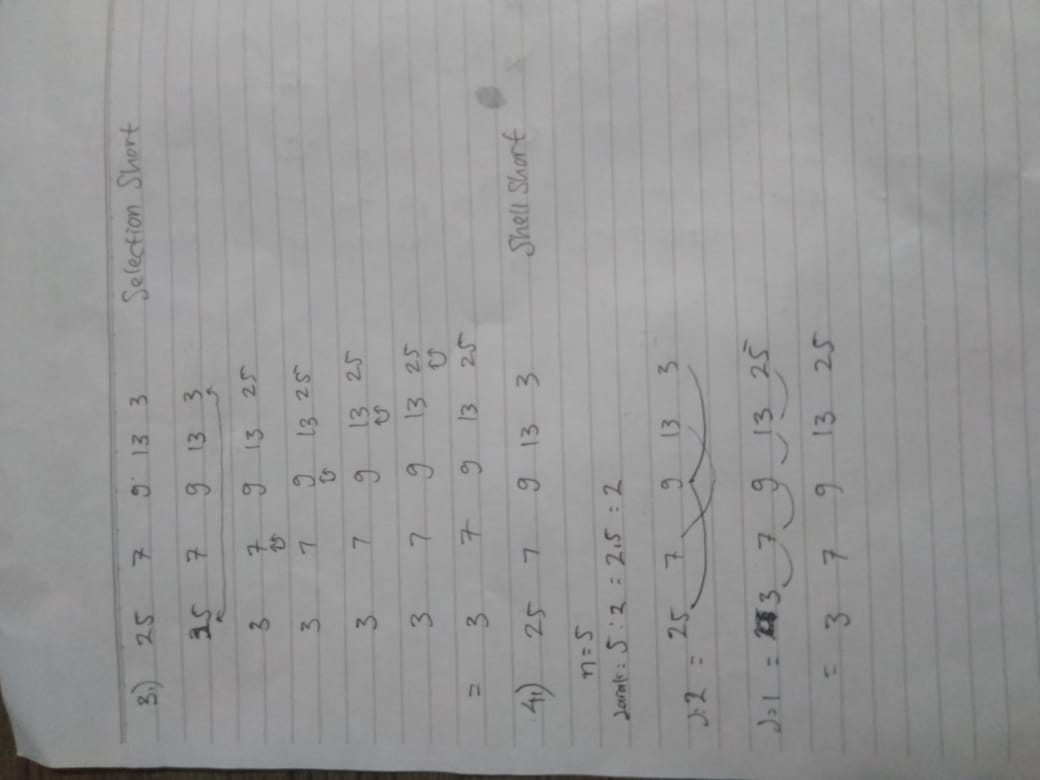 3.) 25 7 9 13 3 Selection Short
25 7 9 13 3
3 7 9 13 25
3 7 9 13 25
3 7 9 13 25
3 7 9 13 25
= 3 7 9 13 25
4.) 25 7 9 13 3 Shell Short
n=5
Jarak: 5 : 2 = 2,5 = 2
J=2 = 25 7 9 13 3
J=1 = 3 7 9 13 25
= 3 7 9 13 25